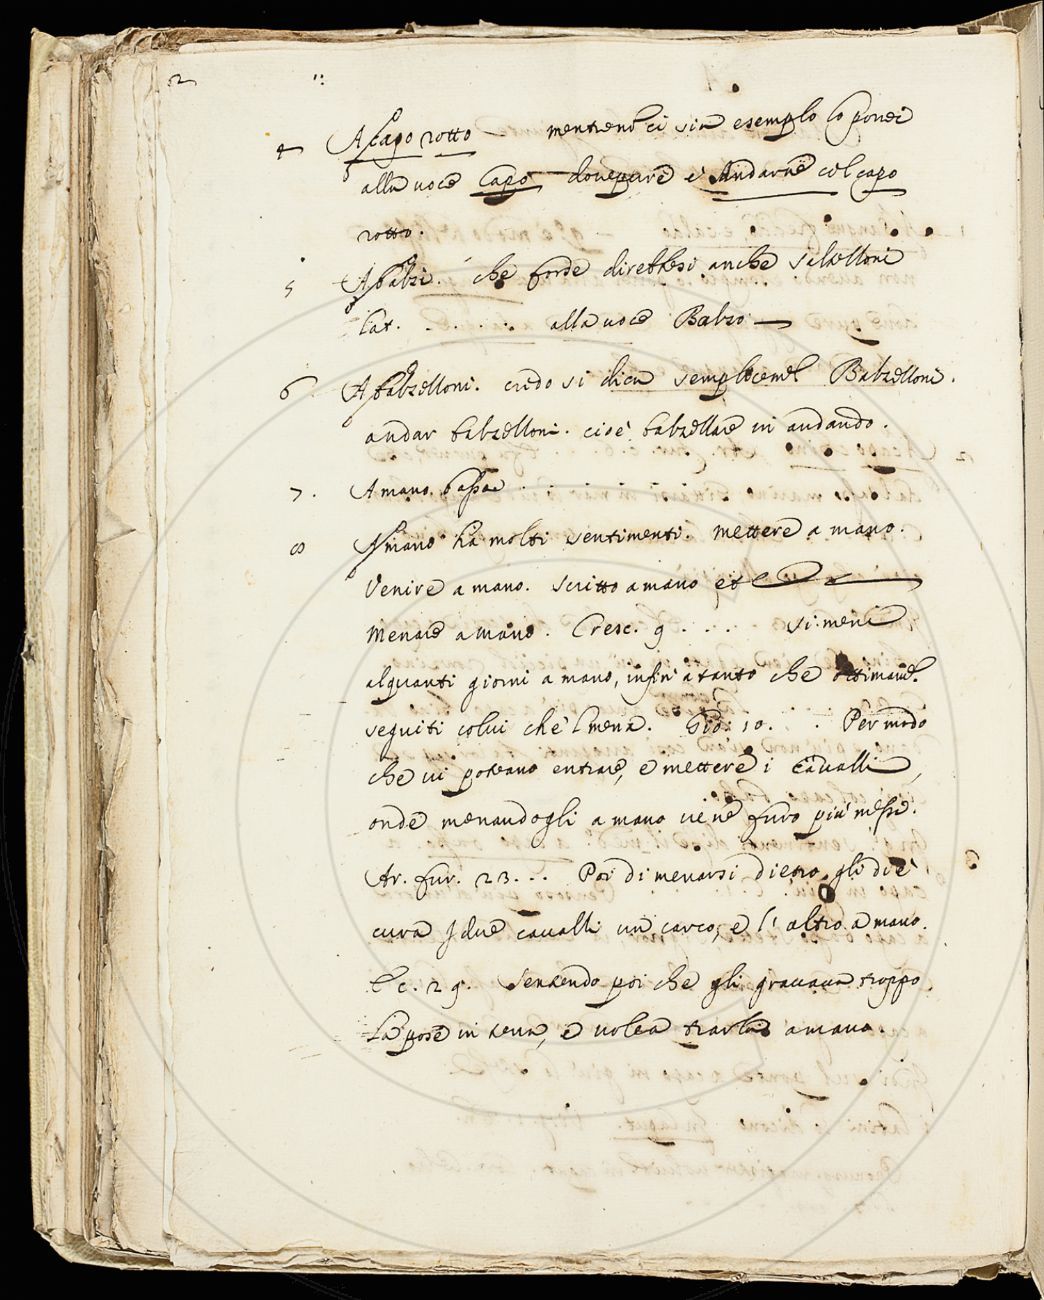 2
4 A capo rotto mentreno ci sia esemplo lo porrei
alla uoce Capo doue pure è Andarne col capo
rotto.
5 A balzi. che forse direbbesi anche Salzelloni
Lat. . . . . alla uoce Balzo
6 A balzelloni. credo si dica semplicemte Balzelloni.
andar balzelloni. cioè balzellare in andando.
7. A mano bassa . . . . .
8 A mano ha molti sentimenti. mettere a mano.
Venire a mano. Scritto a mano et
Menare a mano. Cresc. 9 . . . . si meni
alquanti giorni a mano, infin a tanto che
seguiti colui che 'l mena. Gio: 10. . . Per modo
che ui poteano entrare, e mettere i cavalli,
onde menandogli a mano ue ne furo più messi.
Ar. fur. 23. . . Poi di menarsi dietro gli diè
cura I due caualli un carco, e l' altro a mano.
E c. 29. Sentendo poi che gli grauaua troppo,
La pose in terra, e uolea trarla a mano.